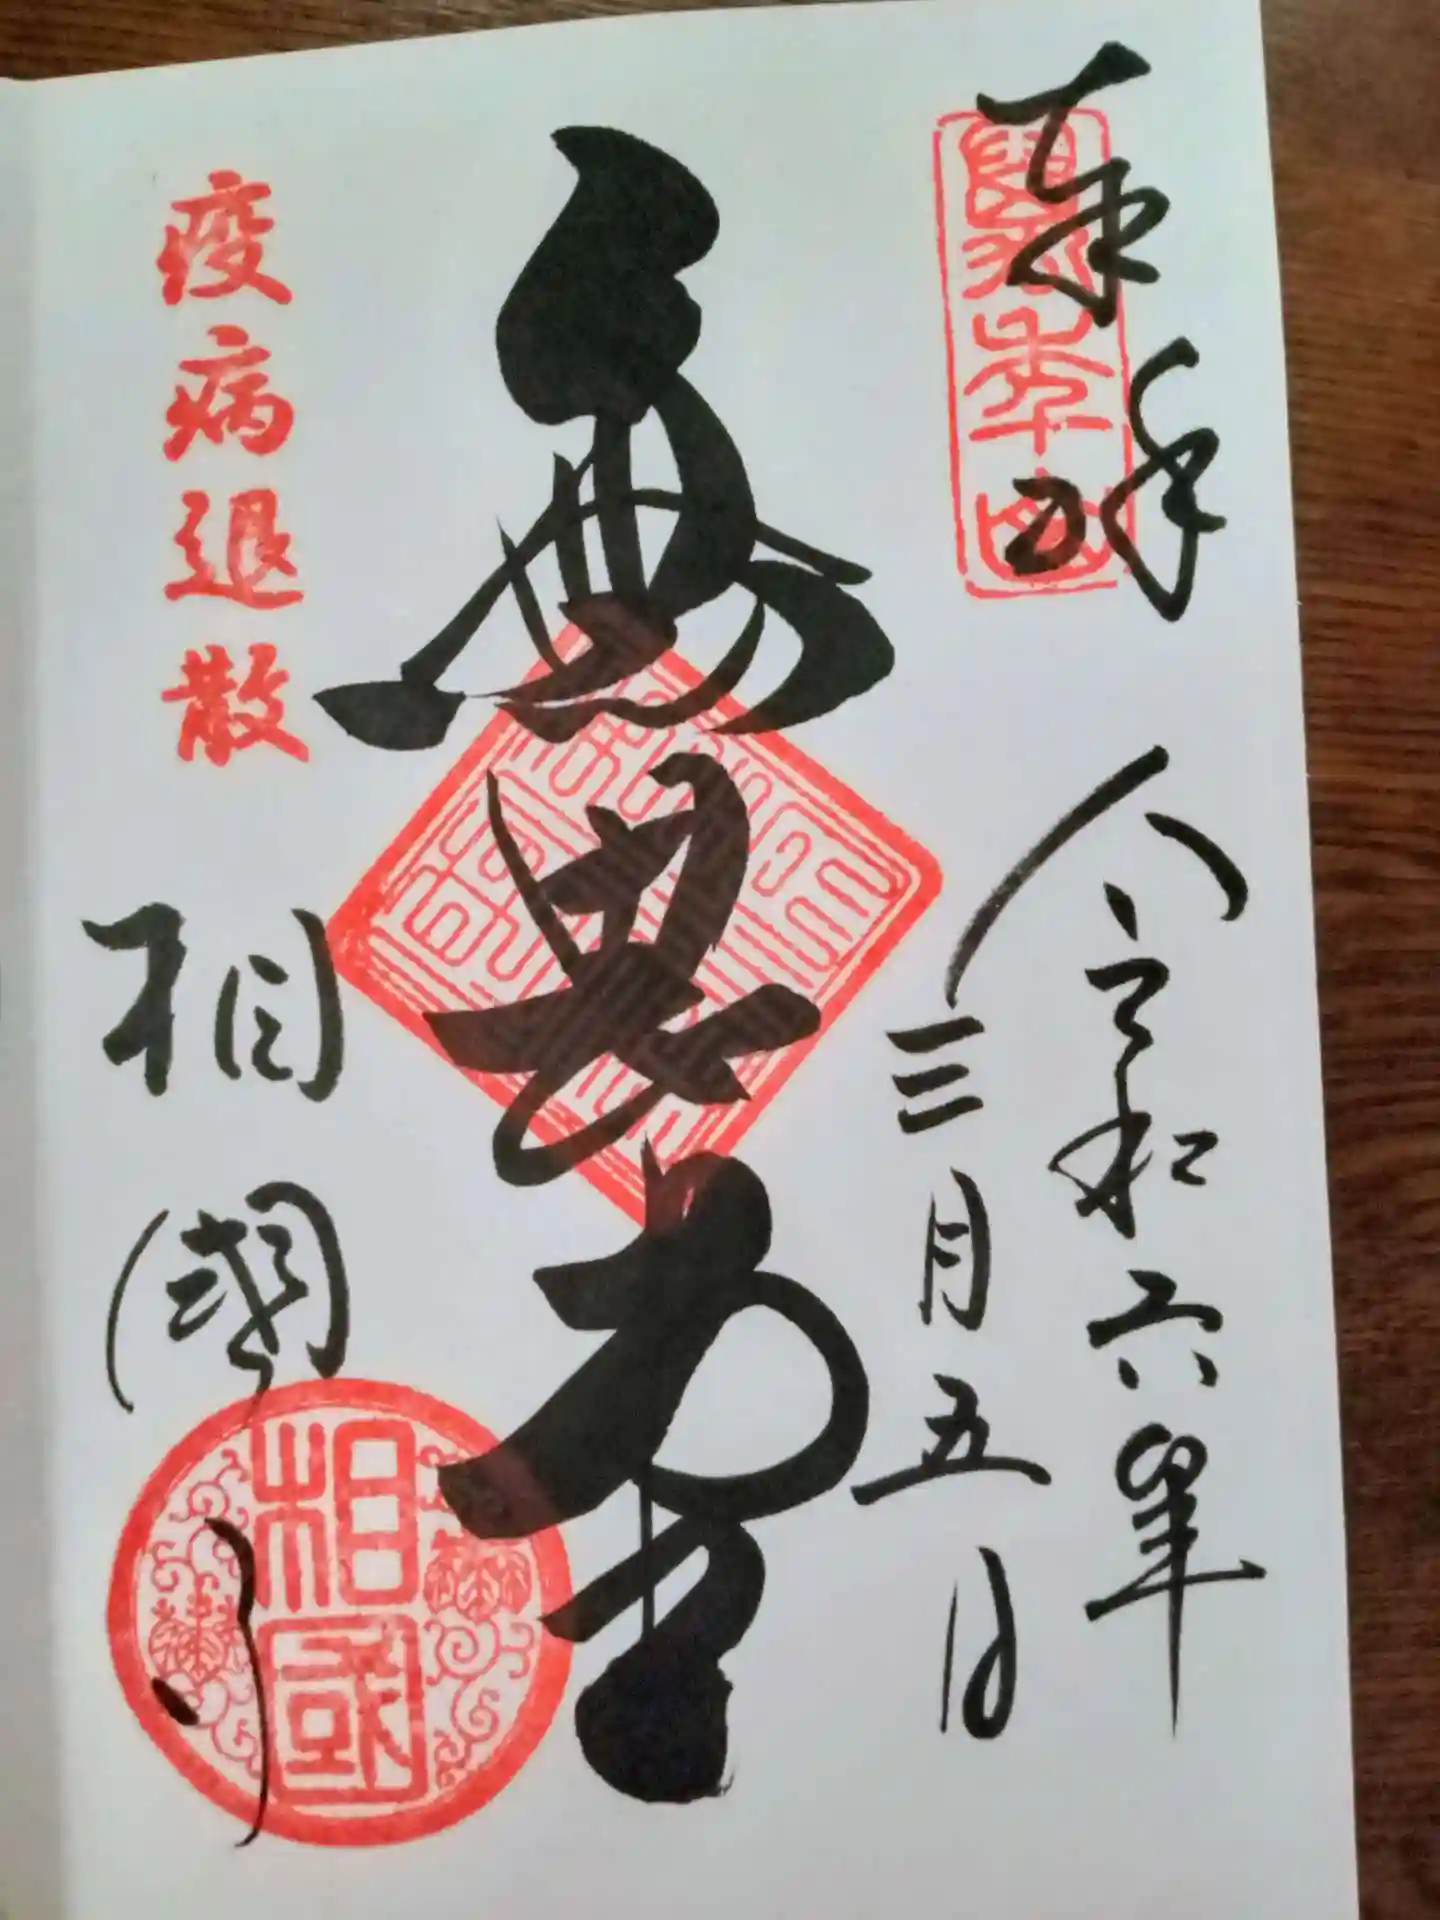 奉拝
萬年山
令和六年
三月五日
無畏堂
疫病退散
相國寺
相國